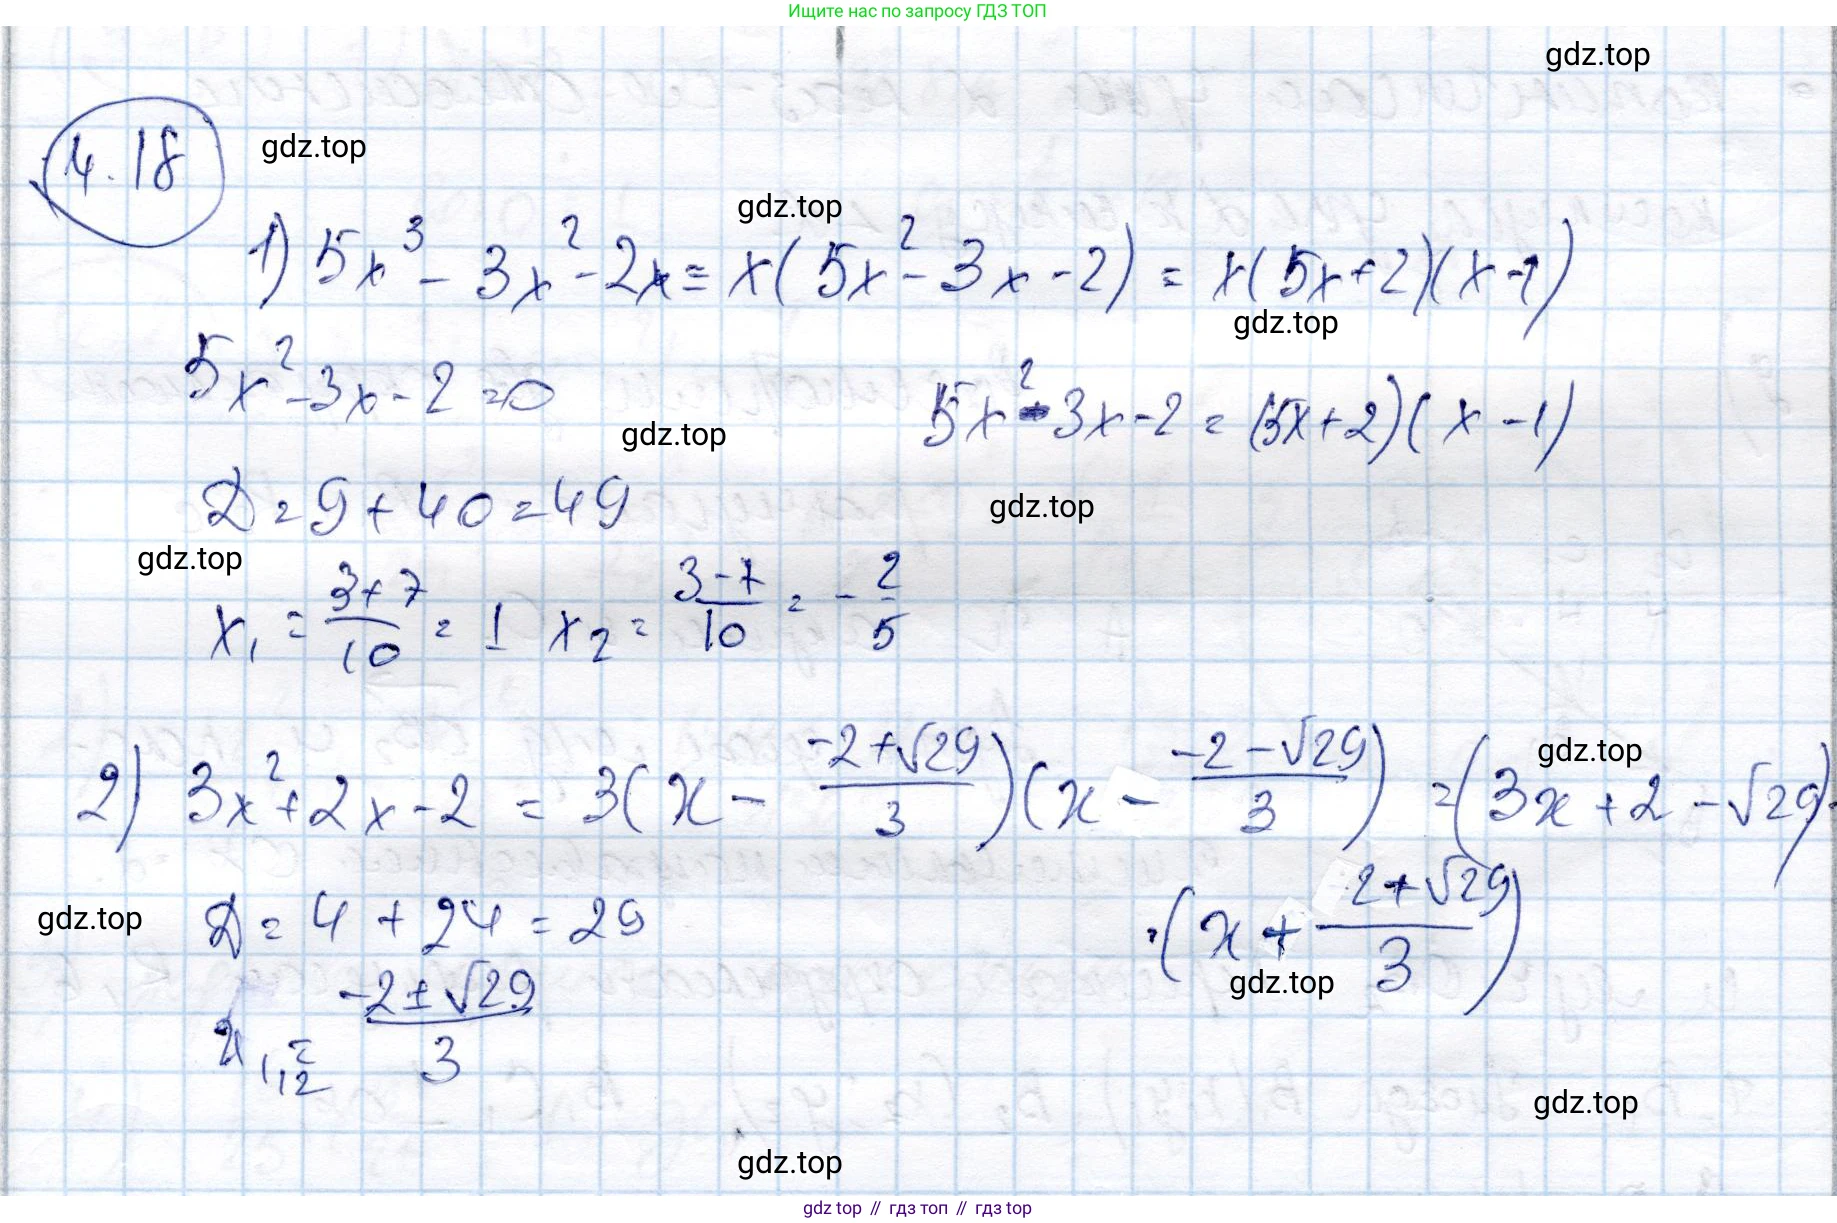 Ищите нас по запросу ГДЗ ТОП
gdz.top
4.18
gdz.top
gdz.top
1) 5x³ - 3x² - 2x = x(5x² - 3x - 2) = x(5x+2)(x-1)
gdz.top
5x² - 3x - 2 = 0
5x² - 3x - 2 = (5x+2)(x-1)
gdz.top
Д = 9 + 40 = 49
gdz.top
gdz.top
x₁ = (3+7)/10 = 1 x₂ = (3-7)/10 = -2/5
2) 3x² + 2x - 2 = 3(x - (-2+√29)/3)(x - (-2-√29)/3) = (3x + 2 - √29)·
gdz.top
·(x + (2+√29)/3)
gdz.top
Д = 4 + 24 = 29
gdz.top
x₁,₂ = (-2±√29)/3
gdz.top
gdz.top
gdz top // гдз топ // gdz top